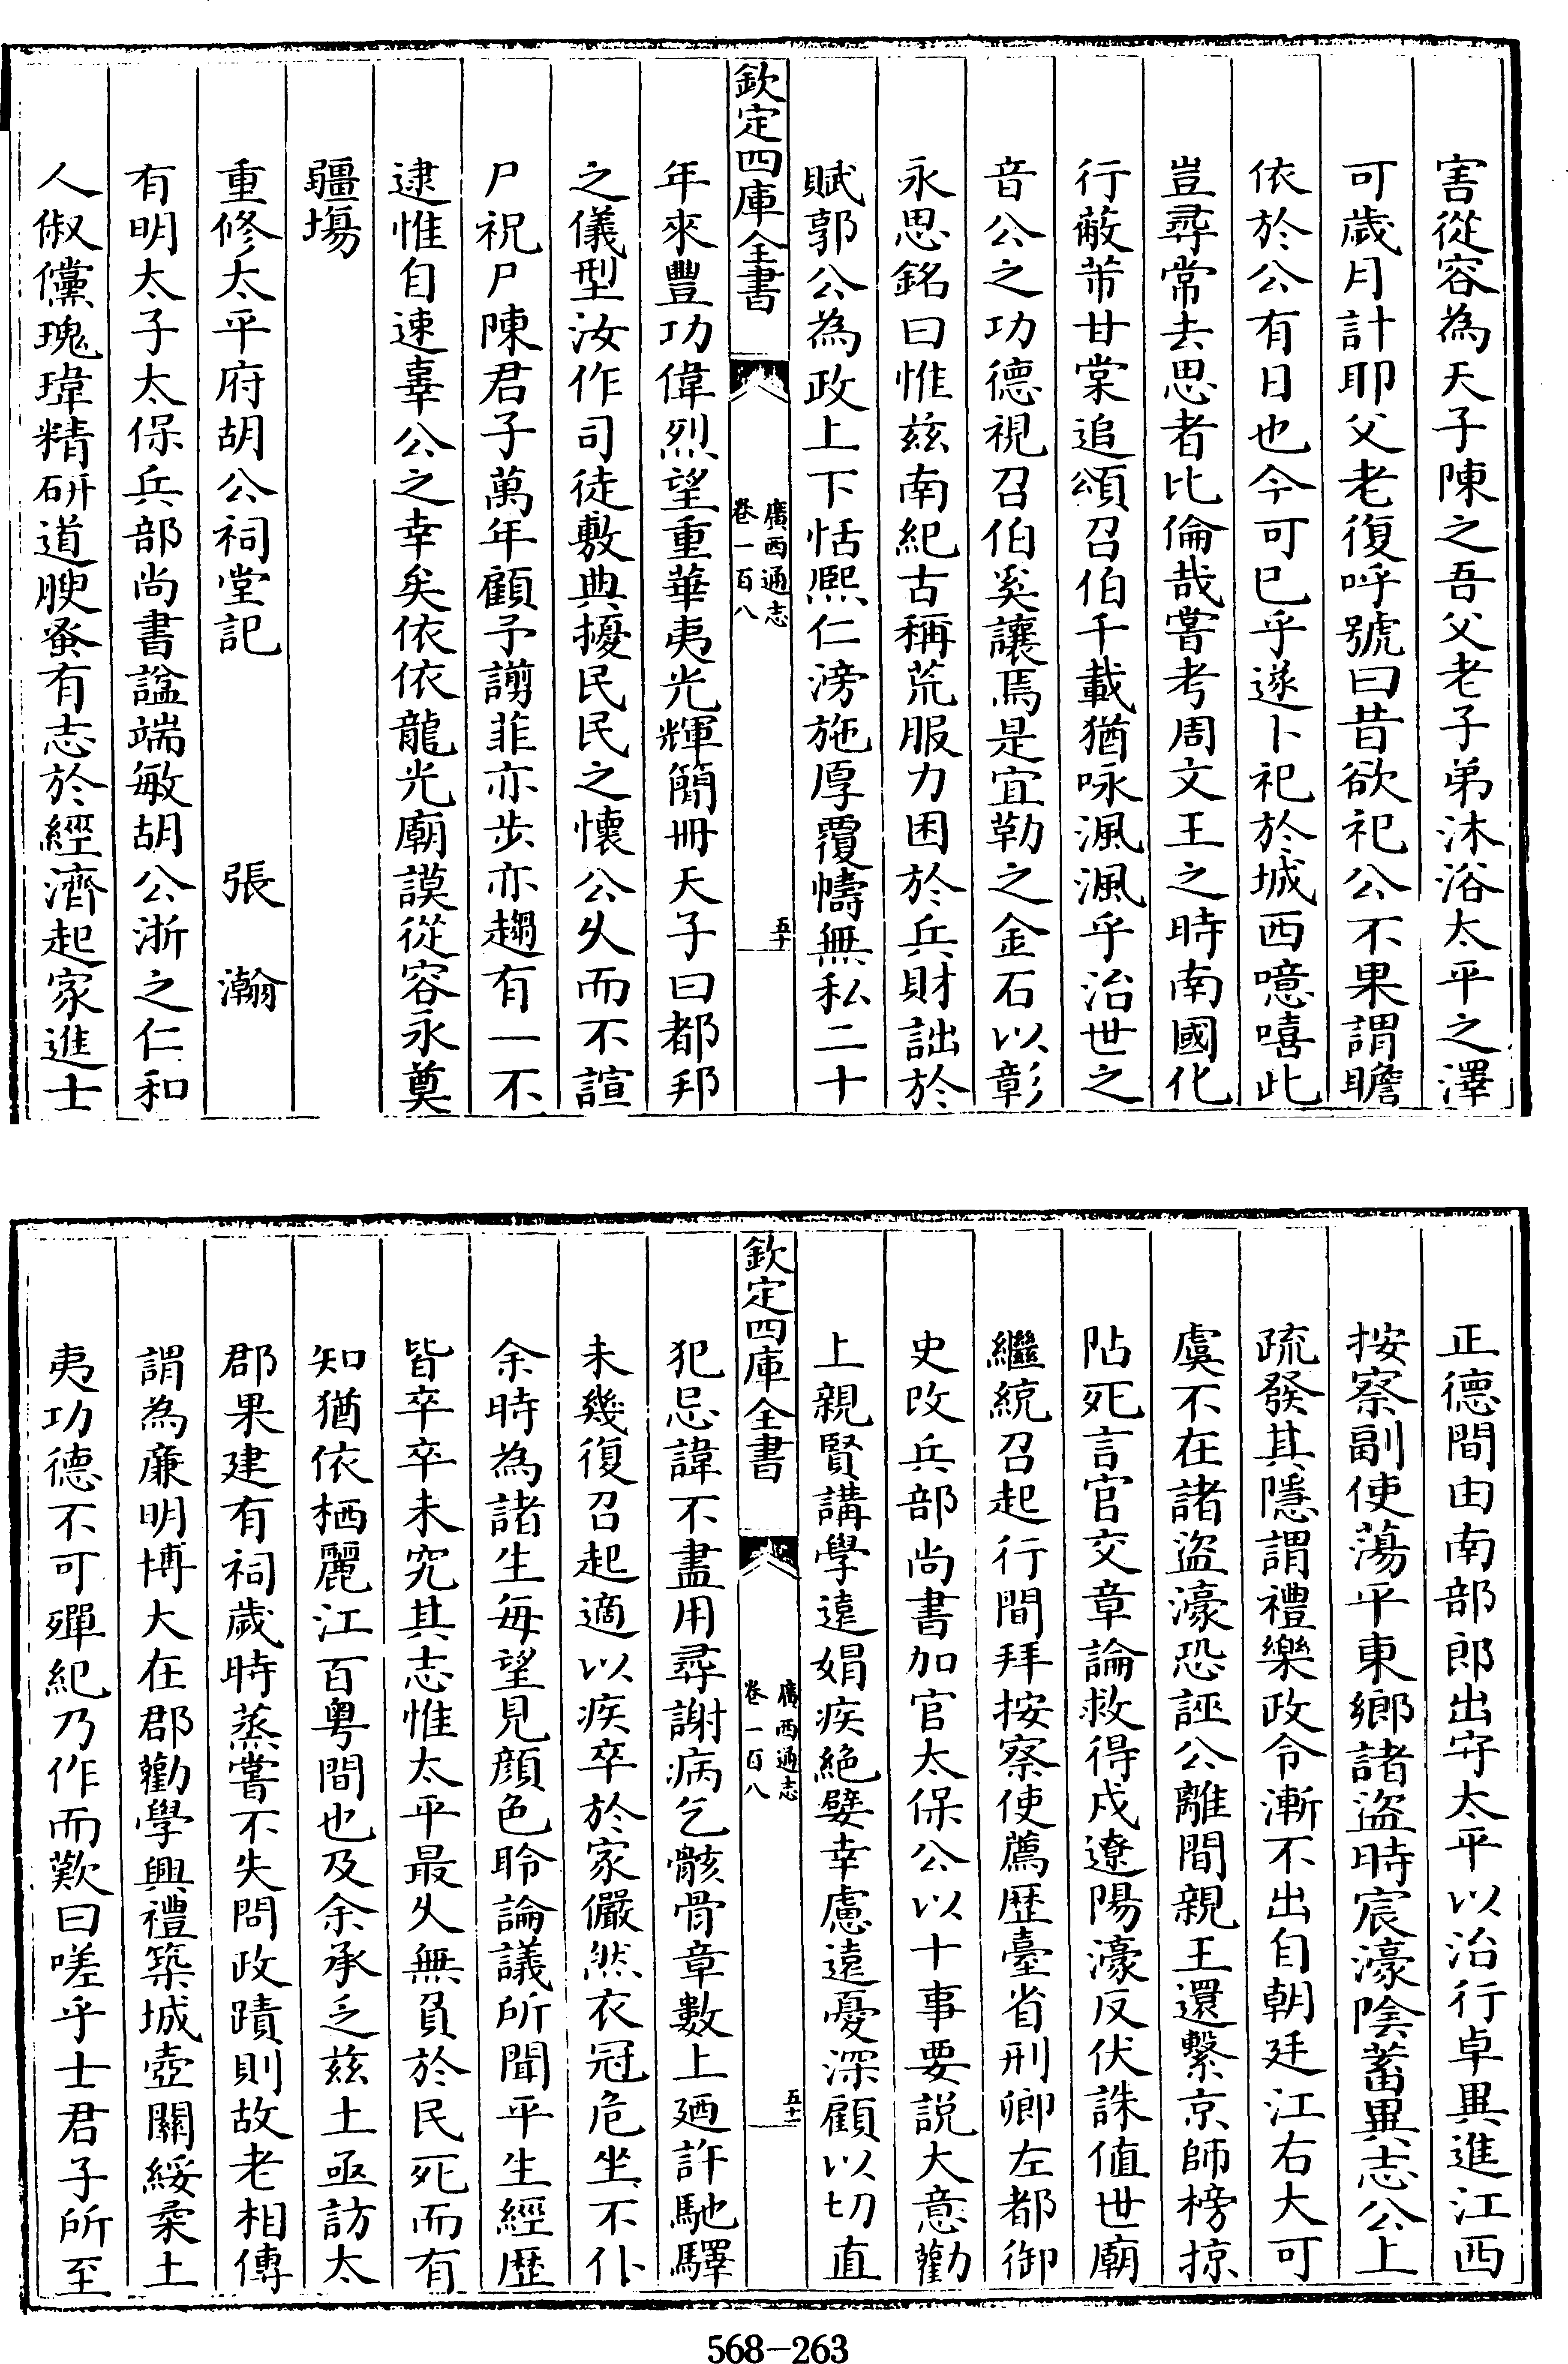 害從容為天子陳之吾父老子弟沐浴太平之澤
可歲月計耶父老復呼號曰昔欲祀公不果謂瞻
依於公有日也今可已乎遂卜祀於城西噫嘻此
豈尋常去思者比倫哉嘗考周文王之時南國化
行蔽芾甘棠追頌召伯千載猶咏渢渢乎治世之
音公之功德視召伯奚讓焉是宜勒之金石以彰
永思銘曰惟兹南紀古稱荒服力困於兵財詘於
賦郭公為政上下恬熈仁滂施厚覆幬無私二十
欽定四庫全書
廣西通志
卷一百八
五十
年來豐功偉烈望重華夷光輝簡冊天子曰都邦
之儀型汝作司徒敷典擾民民之懷公久而不諠
尸祝尸陳君子萬年顧予謭菲亦步亦趨有一不
逮惟自速辜公之幸矣依依龍光廟謨從容永奠
疆塲
重修太平府胡公祠堂記 張瀚
有明太子太保兵部尚書諡端敏胡公浙之仁和
人俶儻瑰瑋精研道腴蚤有志於經濟起家進士
正德間由南部郎出守太平以治行卓異進江西
按察副使蕩平東鄉諸盜時宸濠陰蓄異志公上
疏發其隱謂禮樂政令漸不出自朝廷江右大可
虞不在諸盜濠恐誣公離間親王還繫京師榜掠
阽死言官交章論救得戍遼陽濠反伏誅值世廟
繼統召起行間拜按察使薦歷臺省刑卿左都御
史改兵部尚書加官太保公以十事要説大意勸
上親賢講學遠娟疾絶嬖幸慮遠憂深顧以切直
欽定四庫全書
廣西通志
卷一百八
五十一
犯忌諱不盡用尋謝病乞骸骨章數上廼許馳驛
未幾復召起適以疾卒於家儼然衣冠危坐不仆
余時為諸生每望見顔色聆論議所聞平生經歷
皆卒卒未究其志惟太平最久無負於民死而有
知猶依栖麗江百粤間也及余承乏兹土亟訪太
郡果建有祠歲時蒸嘗不失問政蹟則故老相傳
謂為廉明博大在郡勸學興禮築城壺關綏柔土
夷功德不可殫紀乃作而歎曰嗟乎士君子所至
568-263